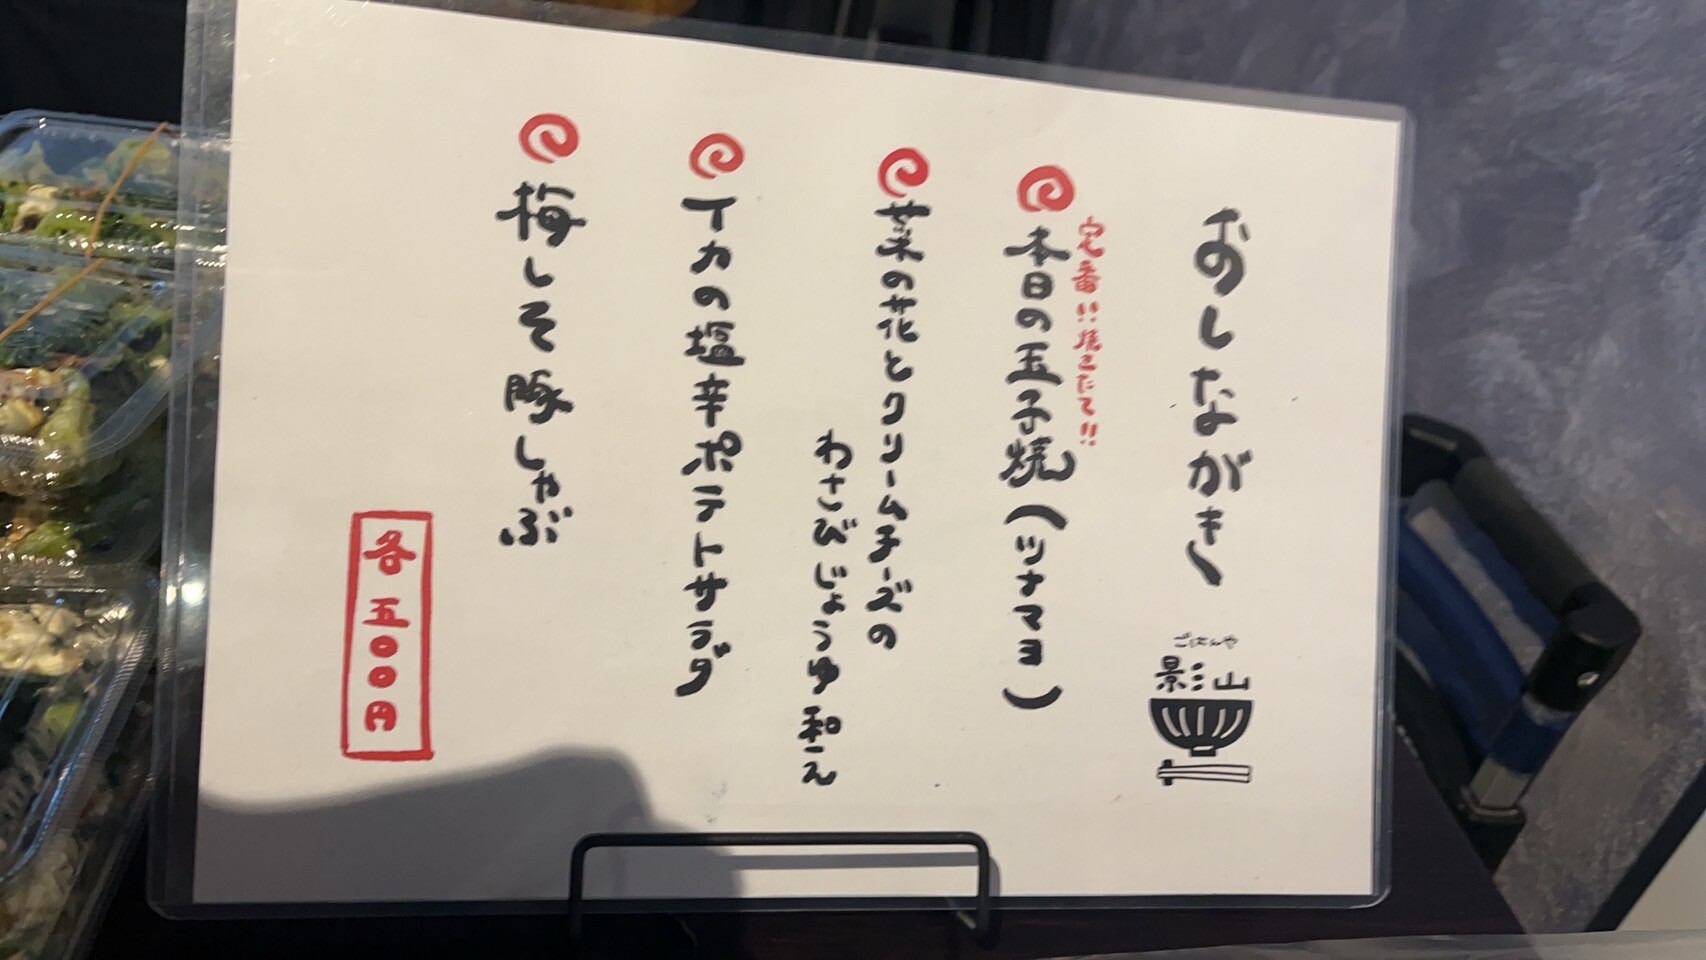 おしながき
ごはんや
影山
定番!!焼きたて!!
本日の玉子焼(ツナマヨ)
菜の花とクリームチーズの
わさびじょうゆ和え
イカの塩辛ポテトサラダ
梅しそ豚しゃぶ
各五〇〇円